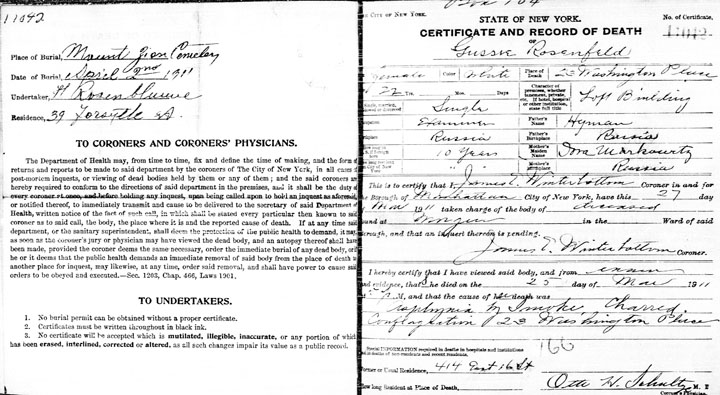 11092
Place of Burial, Mount Zion Cemetery
Date of Burial, April 2nd 1911
Undertaker, H Rosenblume
Residence, 39 Forsythe St.
TO CORONERS AND CORONERS' PHYSICIANS.
The Department of Health may, from time to time, fix and define the time of making, and the form of
returns and reports to be made to said department by the coroners of The City of New York, in all cases
post-mortem inquests, or viewing of dead bodies held by them or any of them; and the said coroners
hereby required to conform to the directions of said department in the premises, and it shall be the duty
every coroner at once, and before holding any inquest, upon being called upon to hold an inquest as aforesaid
or notified thereof, to immediately transmit and cause to be delivered to the secretary of said Department
Health, written notice of the fact of such call, in which shall be stated every particular then known to said
coroner as to said call, the body, the place where it is and the reported cause of death. If at any time said
department, or the sanitary superintendent, shall deem the protection of the public health to demand, it may
as soon as the coroner's jury or physician may have viewed the dead body, and an autopsy thereof shall have
been made, provided the coroner deems the same necessary, order the immediate burial of any dead body, or
he or it deems that the public health demands an immediate removal of said body from the place of death
another place for inquest, may likewise, at any time, order said removal, and shall have power to cause said
orders to be obeyed and executed.—Sec. 1203, Chap. 466, Laws 1901.
TO UNDERTAKERS.
1. No burial permit can be obtained without a proper certificate.
2. Certificates must be written throughout in black ink.
3. No certificate will be accepted which is mutilated, illegible, inaccurate, or any portion of which
has been erased, interlined, corrected or altered, as all such changes impair its value as a public record.
THE CITY OF NEW YORK. STATE OF NEW YORK. No. of Certificate,
CERTIFICATE AND RECORD OF DEATH
OF
Gussie Rosenfeld
female Color White Place of Death 23 Washington Place
22 Yrs. Mos. Days Character of premises, whether tenement, private, etc. If hotel, hospital or other institution, state full title Loft Building
Single, married, widowed or divorced Single
Occupation Examiner Father's Name Hyman
Birthplace Russia Father's Birthplace Russia
10 Years Mother's Maiden Name Dora Markowitz
Mother's Birthplace Russia
This is to certify that I, James E. Winterbottom Coroner in and for
the Borough of Manhattan City of New York, have this 27 day
Mar 1911 taken charge of the body of deceased
found at Morgue in the Ward of said
Borough, and that an inquest thereon is pending.
James E. Winterbottom Coroner.
I hereby certify that I have viewed said body, and from
and evidence, that she died on the 25 day of Mar 1911
M, and that the cause of her death was
Asphyxia by Smoke Charred
Conflagration 23 Washington Place
166
Special INFORMATION required in deaths in hospitals and institutions
and in deaths of non-residents and recent residents.
Former or Usual Residence, 414 East 16 St
How long Resident at Place of Death,
Otto H. Schultze M. D.
Coroner's Physician.